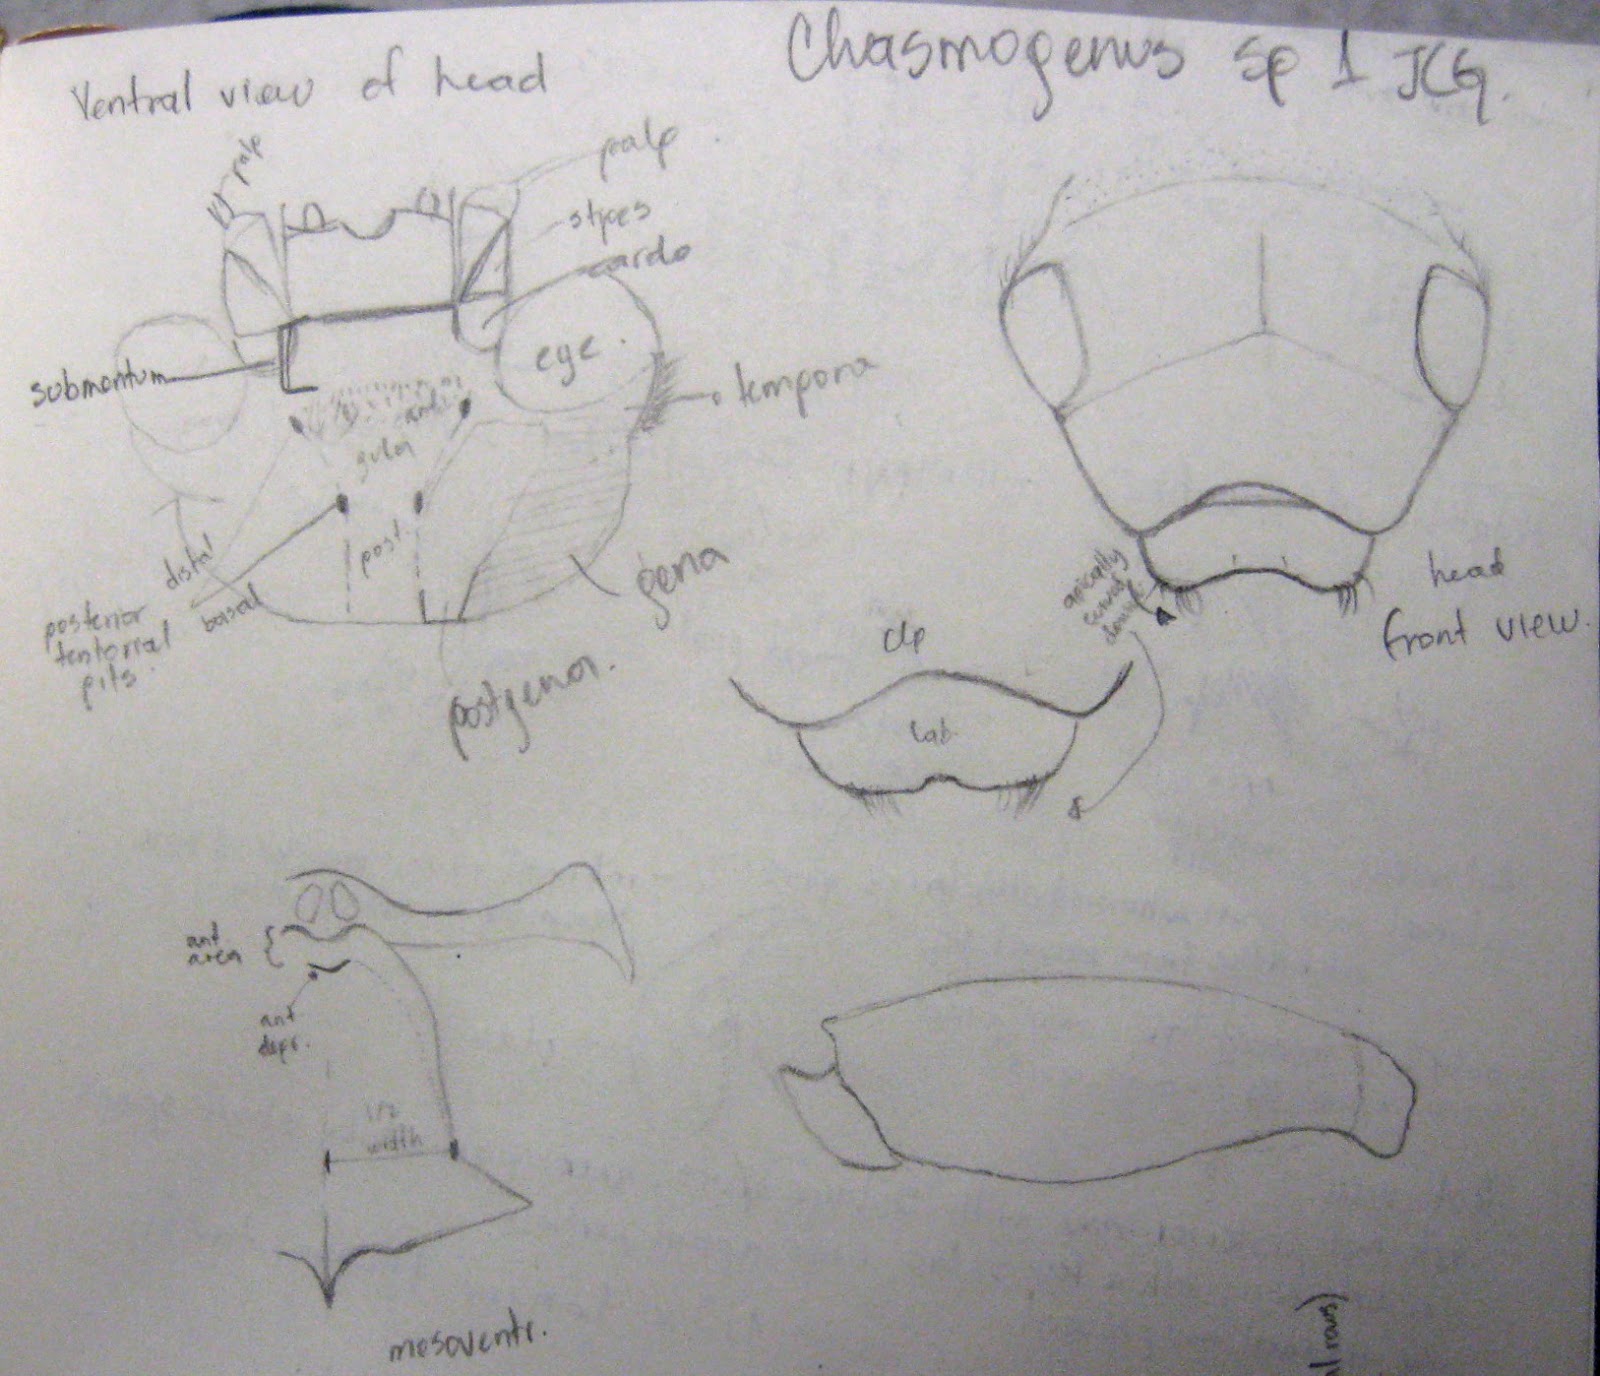 Chasmogenus sp 1 JCG.
Ventral view of head
palp
palp
stipes
cardo
eye.
submentum
tempora
ant.
gular
post.
distal
basal
posterior
tentorial
pits.
gena
postgenor.
apically
curved
head
front view.
clp
lab
ant
area
ant
depr.
1/2
width
mesoventr.